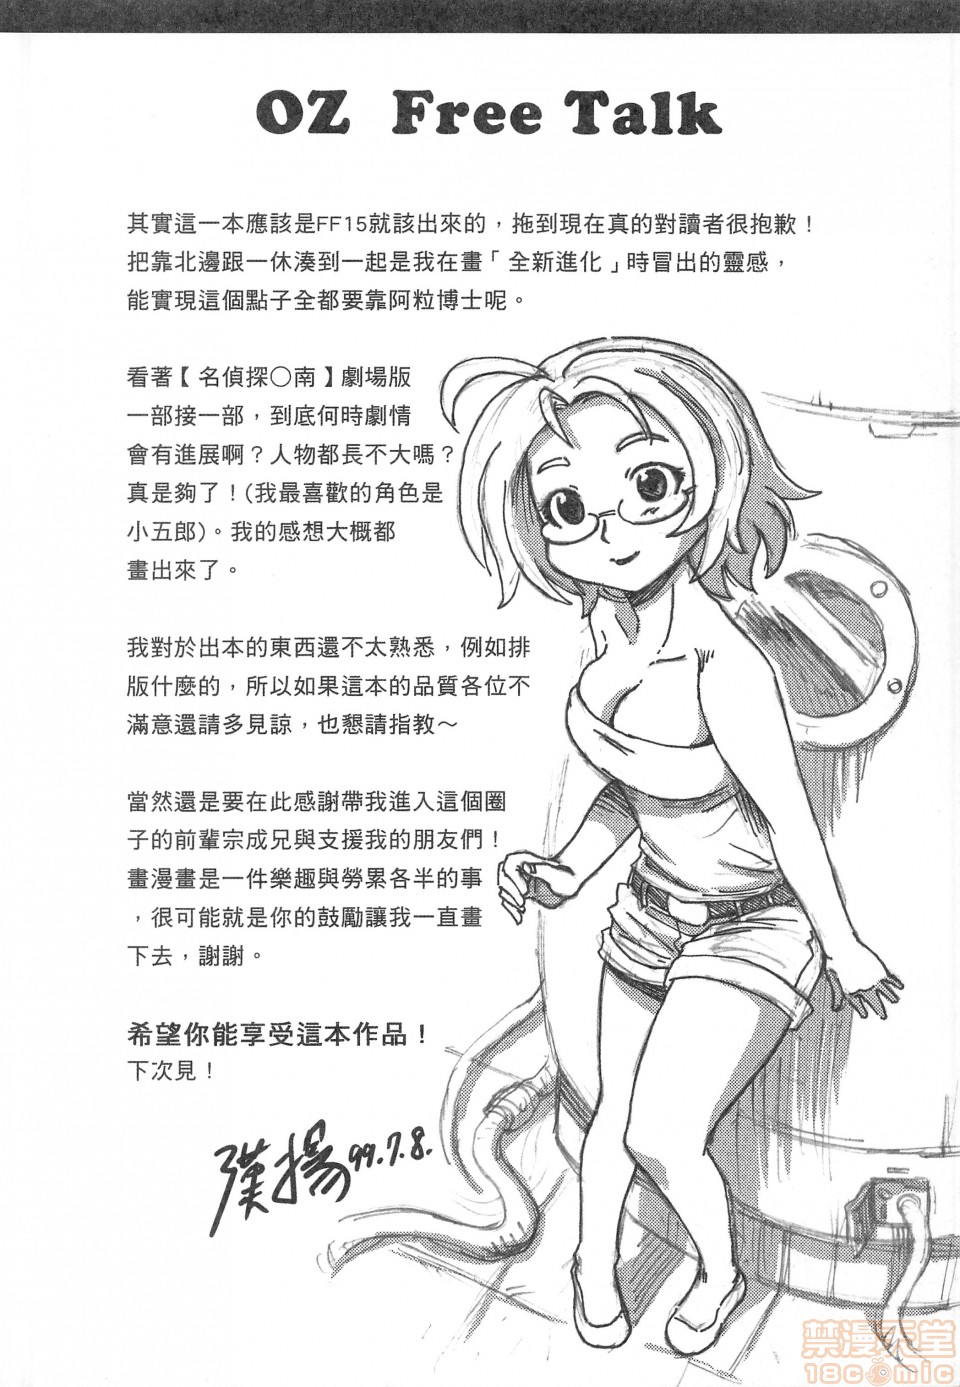 OZ Free Talk
其實這一本應該是FF15就該出來的，拖到現在真的對讀者很抱歉！
把靠北邊跟一休湊到一起是我在畫「全新進化」時冒出的靈感，
能實現這個點子全都要靠阿粒博士呢。
看著【名偵探○南】劇場版
一部接一部，到底何時劇情
會有進展啊？人物都長不大嗎？
真是夠了！(我最喜歡的角色是
小五郎)。我的感想大概都
畫出來了。
我對於出本的東西還不太熟悉，例如排
版什麼的，所以如果這本的品質各位不
滿意還請多見諒，也懇請指教～
當然還是要在此感謝帶我進入這個圈
子的前輩宗成兄與支援我的朋友們！
畫漫畫是一件樂趣與勞累各半的事
，很可能就是你的鼓勵讓我一直畫
下去，謝謝。
希望你能享受這本作品！
下次見！
漢揚 99.7.8.
禁漫天堂
18comic